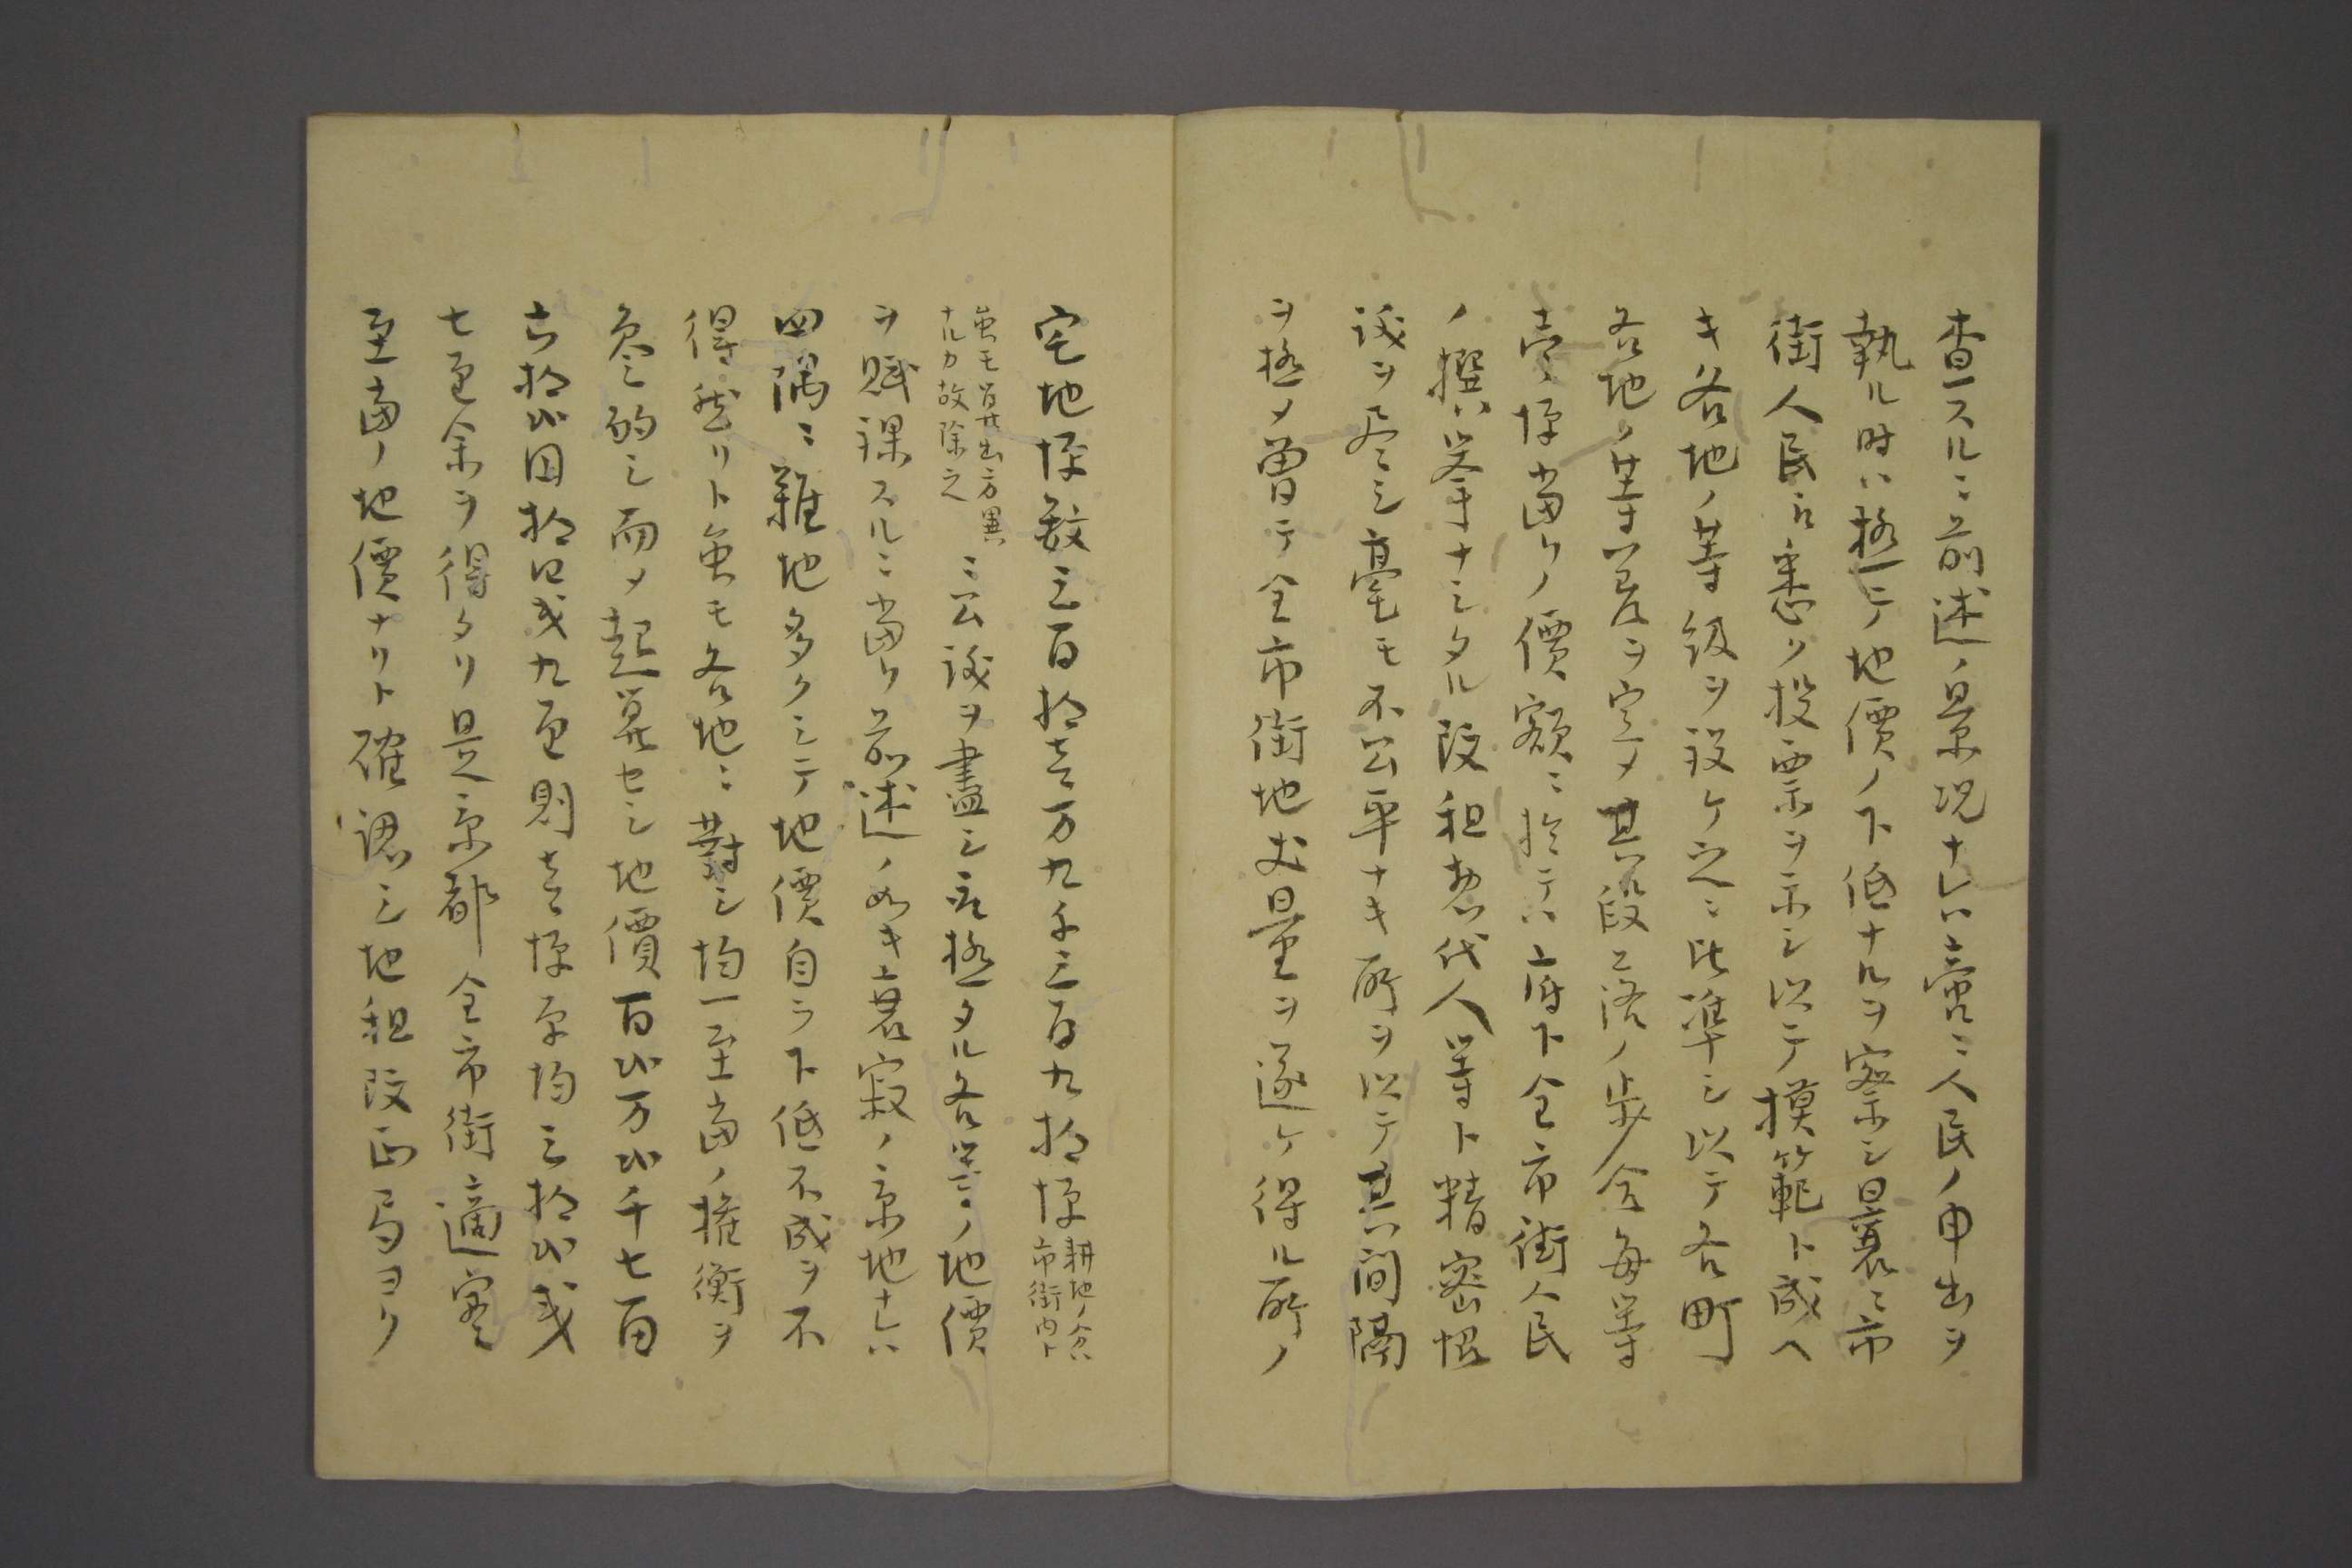 査スルニ前述ノ景況ナレハ壹ニ人民ノ申出ヲ
執ル時ハ極テ地價ノ下低ナルヲ察シ曩ニ市
街人民ニ悉ク投票ヲ示シ以テ摸範ト成ヘ
キ各地ノ等級ヲ設ケ之ニ比準シ以テ各町
各地ノ等差ヲ定メ其段落ノ歩合毎等
壱坪當リノ價額ニ於テハ府下全市街人民
ノ撰挙ナシタル改租惣代人等ト精密恨
議ヲ尽シ毫モ不公平ナキ所ヲ以テ其間隔
ヲ極メ曽テ全市街地丈量ヲ遂ケ得ル所ノ
宅地坪数三百拾壱万九千三百九拾坪 耕地ノ分ハ市街内ト
雖モ算出方異ナルカ故除之 ニ公議ヲ盡シ極タル各等ノ地價
ヲ賦課スルニ當リ前述ノ如キ衰寂ノ京地ナレハ
四隅ニ難地多クシテ地價自ラ下低不成ヲ不
得然リト雖モ各地ニ對シ均一至當ノ権衡ヲ
的シ而メ起算セシ地價百弐万弐千七百
六拾弐円拾四戔九厘則壱坪平均三拾弐戔
七厘余ヲ得タリ是京都全市街適實
至當ノ地價ナリト確認シ地租改正局ヨリ